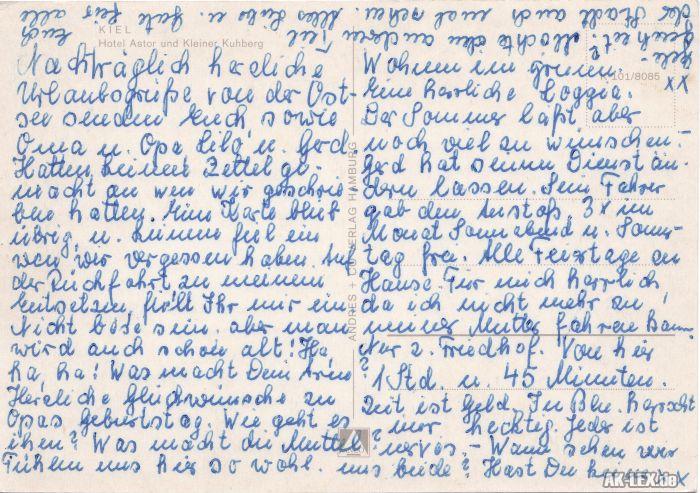 KIEL
Hotel Astor und Kleiner Kuhberg
101/8085
Nachträglich herzliche
Urlaubsgrüße von der Ost-
see senden Euch sowie
Oma u. Opa Lilo u. Gerd.
Hatten keinen Zettel ge-
macht an wen wir geschrie
ben hatten. Eine Karte blieb
übrig, u. keinem fiel ein
wen wir vergessen haben. Auf
der Rückfahrt zu meinem
Entsetzen, fielt Ihr mir ein
Nicht böse sein. aber man
wird auch schon alt! Ha,
ha, ha! Was macht Dein
Herzliche Glückwünsche zu
Opas Geburtstag. Wie geht es
ihm? Was macht die Mutte?
Fühlen uns hier so wohl.
Wohnen im Grünen.
Eine herrliche Loggia.
Der Sommer läßt aber
noch viel zu wünschen.-
Gerd hat seinen Dienst än-
dern lassen. Sein Fahrer
gab den Anstoß. 3x im
Monat Sonnabend u. Sonn-
tag frei. Alle Feiertage zu
Hause. Für mich herrlich
da ich nicht mehr zu
meiner Mutter fahren kann
Nur z. Friedhof. Von hier
1 Std. u. 45 Minuten.
Zeit ist Geld. In Bln. herrscht
nur Hecktig. Jeder ist
nervös. - Wann sehen wir
uns beide? Hast Du
xx
der Stadt auch mal sehen. Alles Liebe u. Gute für alle
Möchte den anderen Teil Euch
ANDRES + CO VERLAG HAMBURG
AK-LEX.DB